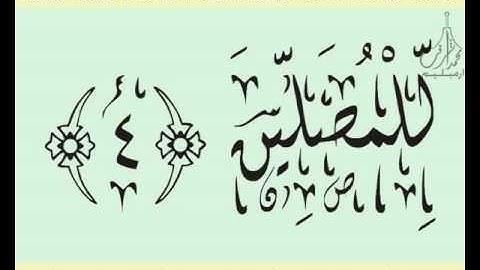 لِّلْمُصَلِّينَ ﴿٤﴾